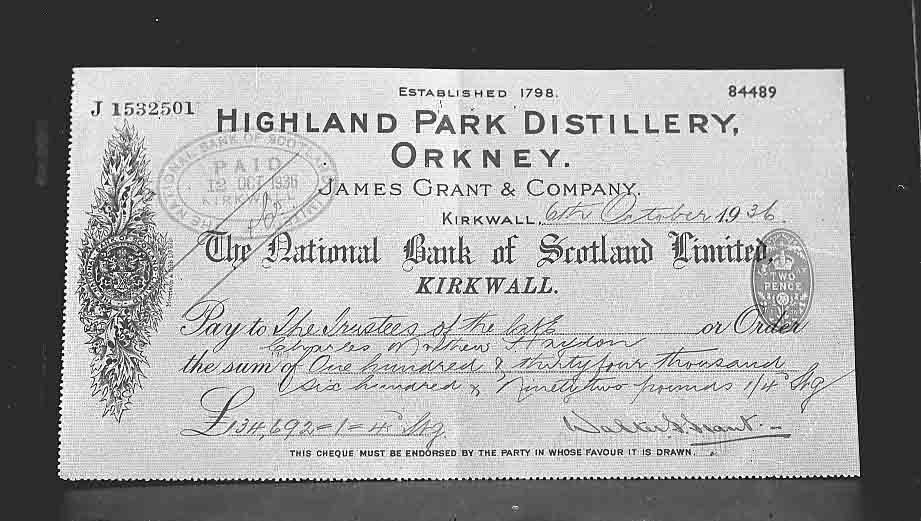 ESTABLISHED 1798.
84489
J 1532501
HIGHLAND PARK DISTILLERY,
ORKNEY.
JAMES GRANT & COMPANY.
NATIONAL BANK OF SCOTLAND LIMITED
PAID
12 OCT 1936
KIRKWALL
KIRKWALL, 6th October 1936.
The National Bank of Scotland Limited,
KIRKWALL.
TWO
PENCE
Pay to The Trustees of the late or Order
Charles Mathew Haydon
the sum of One hundred & thirtyfour thousand
six hundred & Ninetytwo pounds 1/4d Stg
£134,692=1=4d Stg.
Walter G. Grant.
THIS CHEQUE MUST BE ENDORSED BY THE PARTY IN WHOSE FAVOUR IT IS DRAWN.